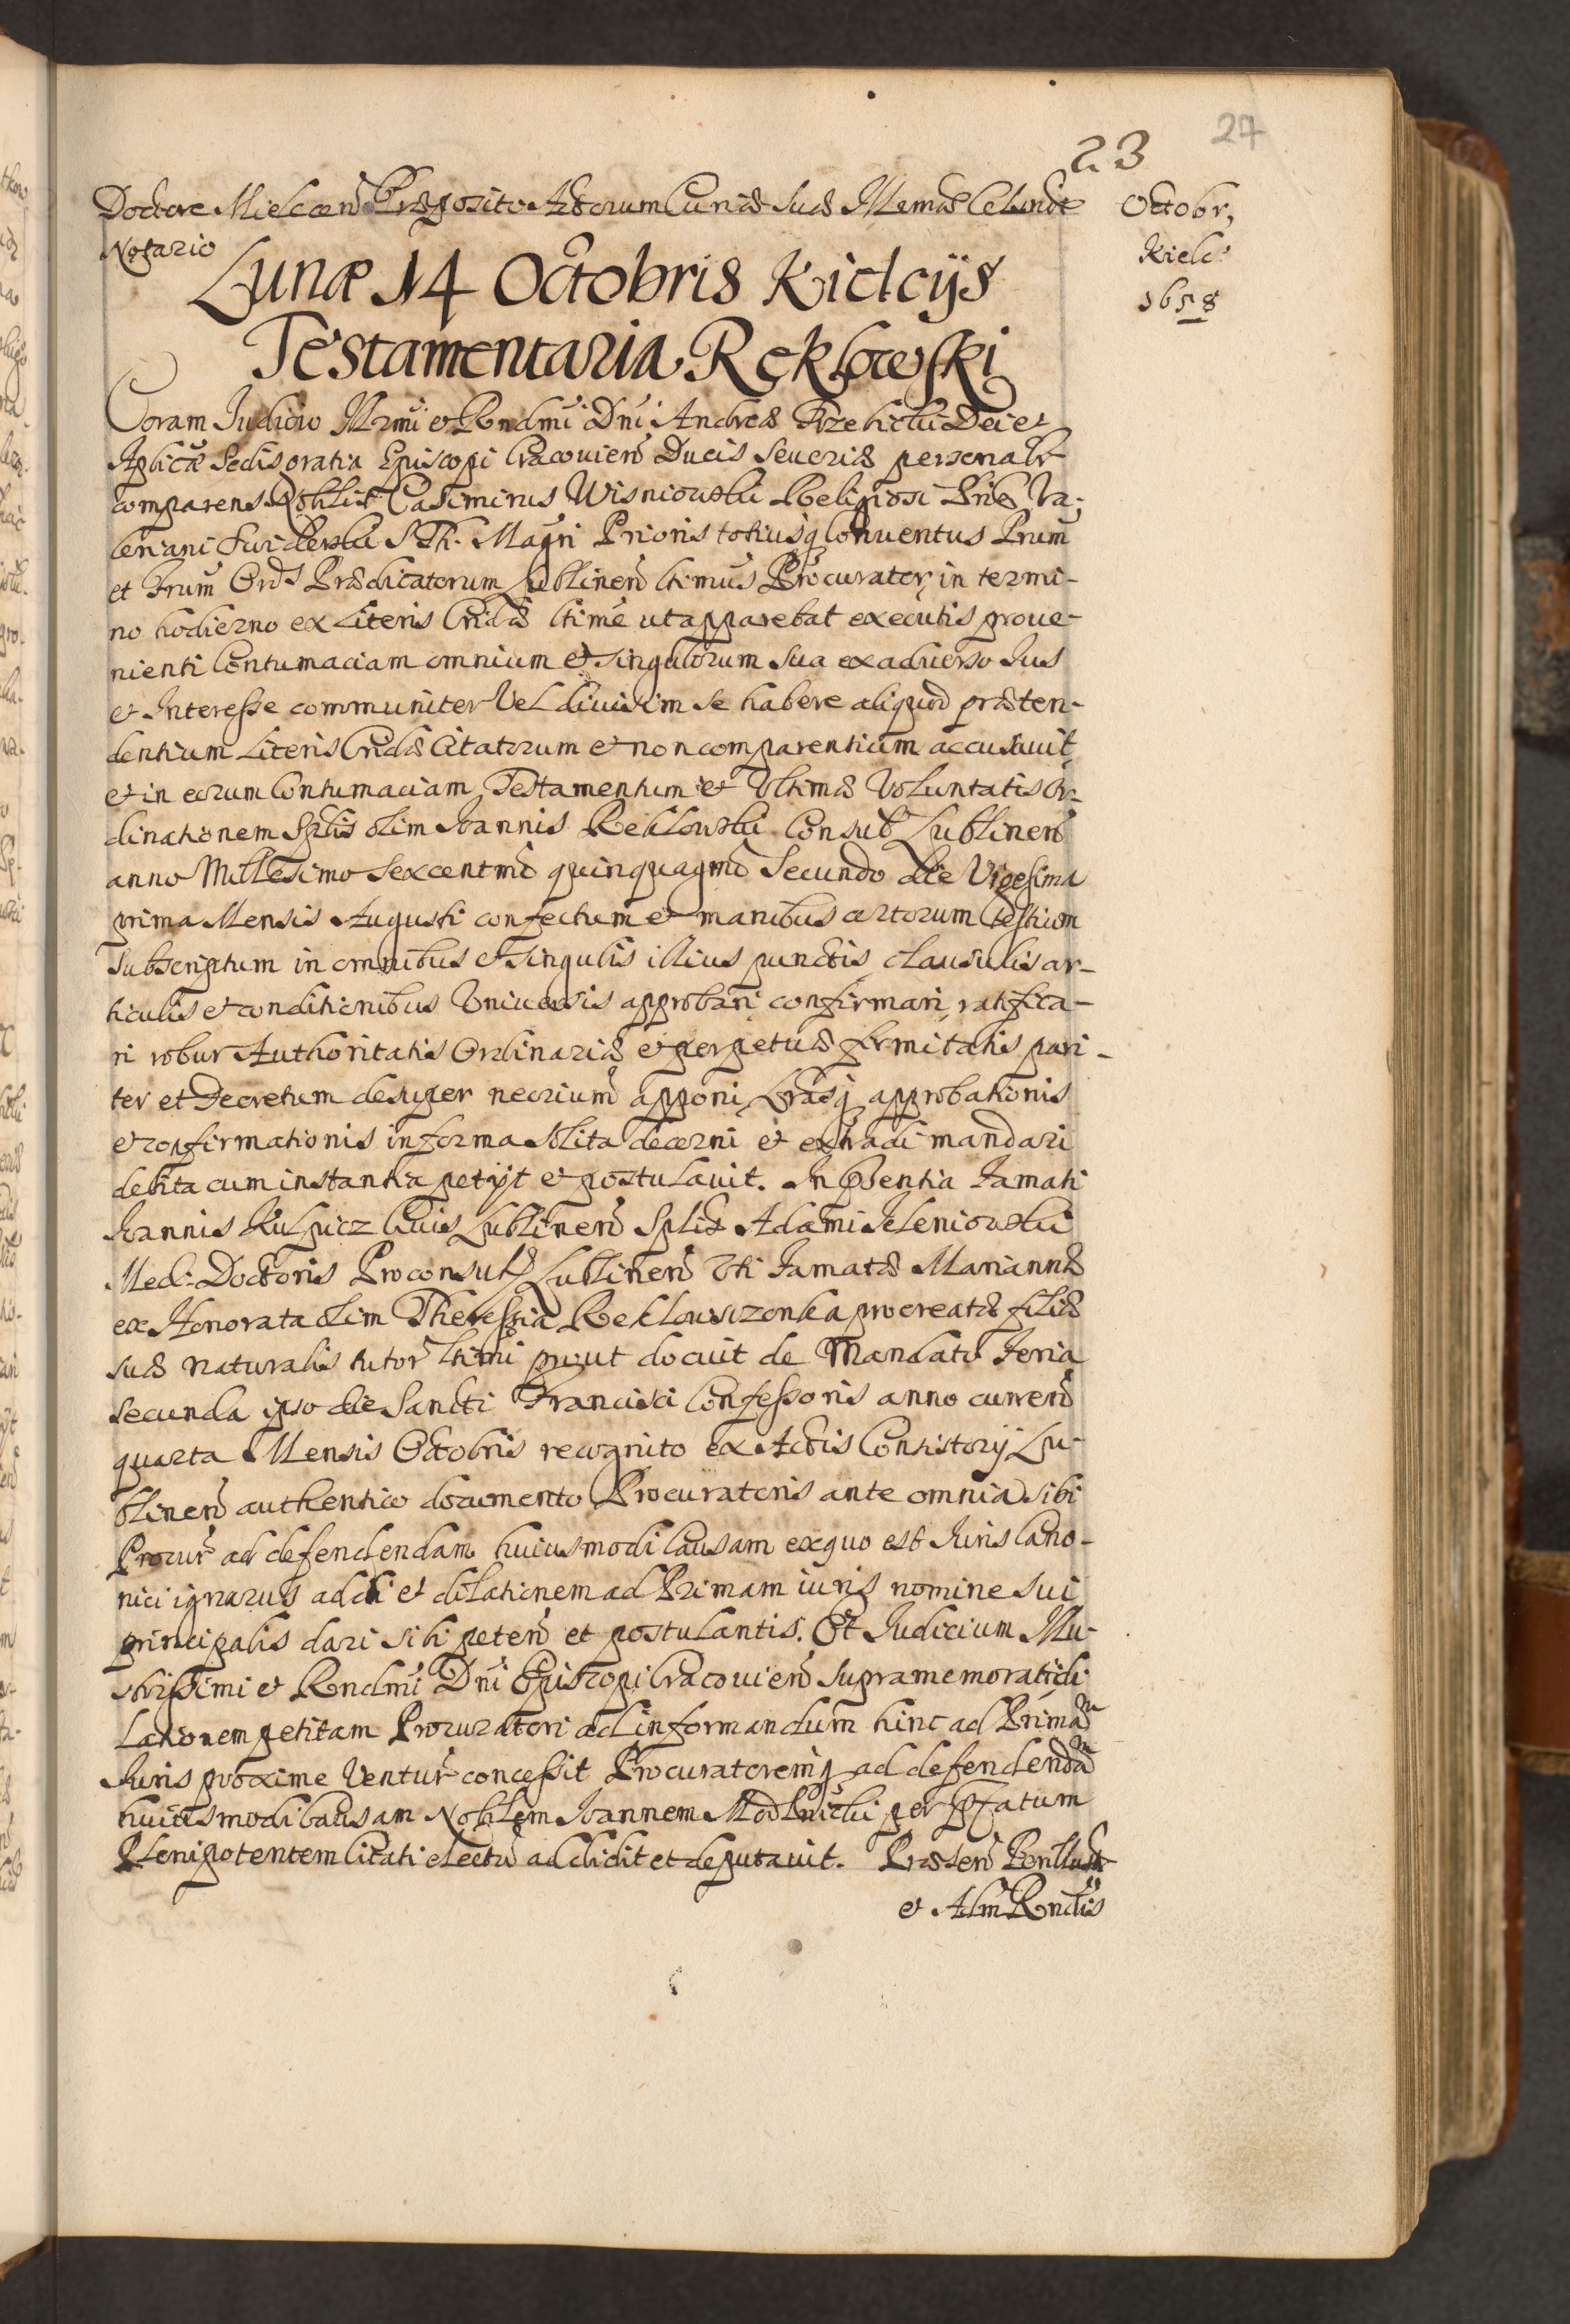 27
23
Octobr,
Kielc:
1658
Doctore Mielcen Præposito Actorum Curiæ Suæ Illemæ Celsndæ
Notario
Lunæ 14 Octobris Kielcijs
Testamentaria Reklowski
Coram Judicio Illrmi et Rendmi Dni Andreæ Trzebicki Dei et
Aplicæ Sedis gratia Episcopi Cracovien Ducis Severiæ personalr
comparens Nobilis Casimirus Wisniowski Religiosi Pris Va-
leriani S. Th. Magri Prioris totiusq Conventus Prum
et Frum Ords Prædicatorum Lublinen ltimus Procurator, in termi-
no hodierno ex Literis Cridæ ltime ut apparebat executis prove-
nienti Contumaciam omnium et singulorum sua ex adverso Jus
et Interesse communiter Vel divisim se habere aliquod præten-
dentium Literis Cridæ Citatorum et non comparentium accusavit,
et in eorum Contumaciam Testamentum et Ultimæ Voluntatis Or-
dinationem Splis olim Joannis Reklowski Consul Lublinen
anno Millesimo Sexcentmo quinquagmo Secundo die Vigesima
prima Mensis Augusti confectum et manibus certorum testium
Subscriptum in omnibus et singulis illius punctis clausulis ar-
ticulis et conditionibus Universis approbari confirmari, ratifica-
ri robur Authoritatis Ordinariæ et perpetuæ firmitatis pari-
ter et Decretum desuper necrium apponi Lrasq approbationis
et confirmationis in forma Solita decerni et extradi mandari
debita cum instantia petijt et postulavit. In Psentia Famati
Joannis Kulpicz Civis Lublinen Splis Adami Jeleniowski
Med: Doctoris Proconsuls Lublinen Uti Famatæ Mariannæ
ex Honorata olim Theressia Reklowiczonka procreatæ filiæ
suæ naturalis tutor ltimi prout docuit de Mandato Feria
secunda ipso die Sancti Francisci Confessoris anno curren
quarta Mensis Octobris recognito ex Actis Consistorij Lu-
blinen authentico documento Procuratoris ante omnia sibi
Procur ad defendendam huiusmodi Causam ex quo est Juris Cano-
nici ignarus addi et dilationem ad Primam iuris nomine sui
principalis dari sibi peten et postulantis. Et Judicium Illu-
strissimi et Rendmi Dni Episcopi Cracovien supramemorati di
lationem petitam Procuratori ad informandum hinc ad Primam
Juris proxime Ventur concessit Procuratoremq ad defendendam
huiusmodi Causam Nobilem Joannem per Pfatum
Plenipotentem Citati electu addidit et deputavit. Præsen Perillust
et Adm Rndis